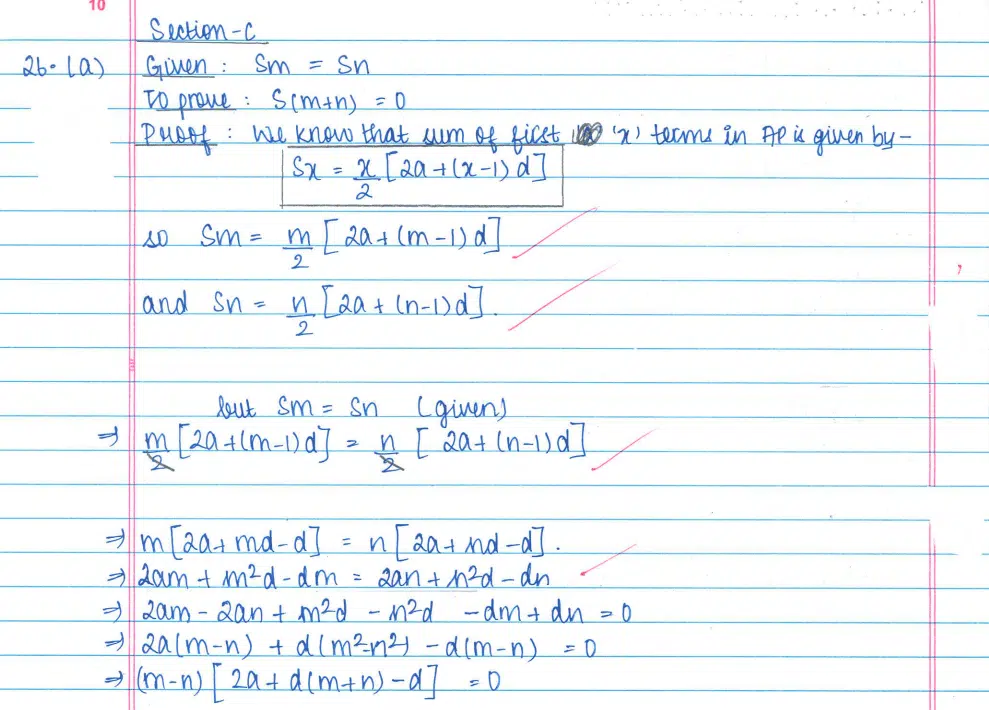 10
Section-C
26. (a) Given : Sm = Sn
To prove : S(m+n) = 0
Proof : We know that sum of first 'x' terms in AP is given by-
Sx = x/2 [2a+(x-1)d]
so Sm = m/2 [2a+(m-1)d]
and Sn = n/2 [2a+(n-1)d].
but Sm = Sn (given)
⇒ m/2 [2a+(m-1)d] = n/2 [2a+(n-1)d]
⇒ m[2a+md-d] = n[2a+nd-d].
⇒ 2am + m²d - dm = 2an + n²d - dn
⇒ 2am - 2an + m²d - n²d - dm + dn = 0
⇒ 2a(m-n) + d(m²-n²) - d(m-n) = 0
⇒ (m-n)[2a+d(m+n)-d] = 0